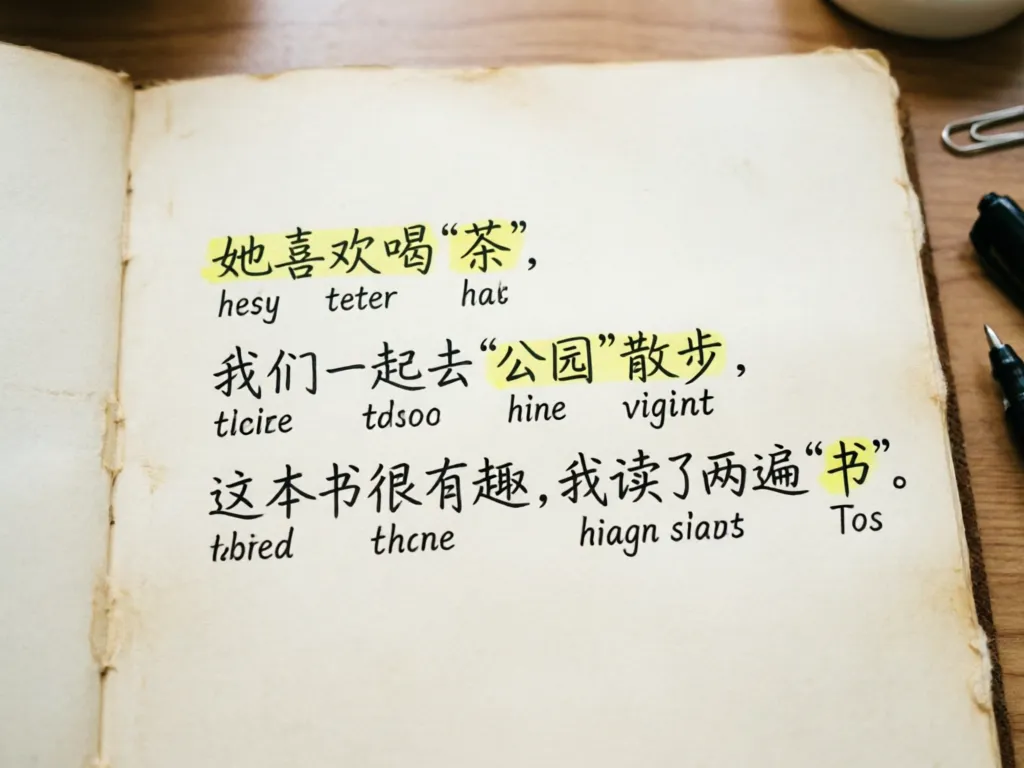 她喜欢喝“茶”,
hesy teter hat
我们一起去“公园”散步,
tlcire tdsoo hine vigint
这本书很有趣,我读了两遍“书”。
thcne hiagn Tos